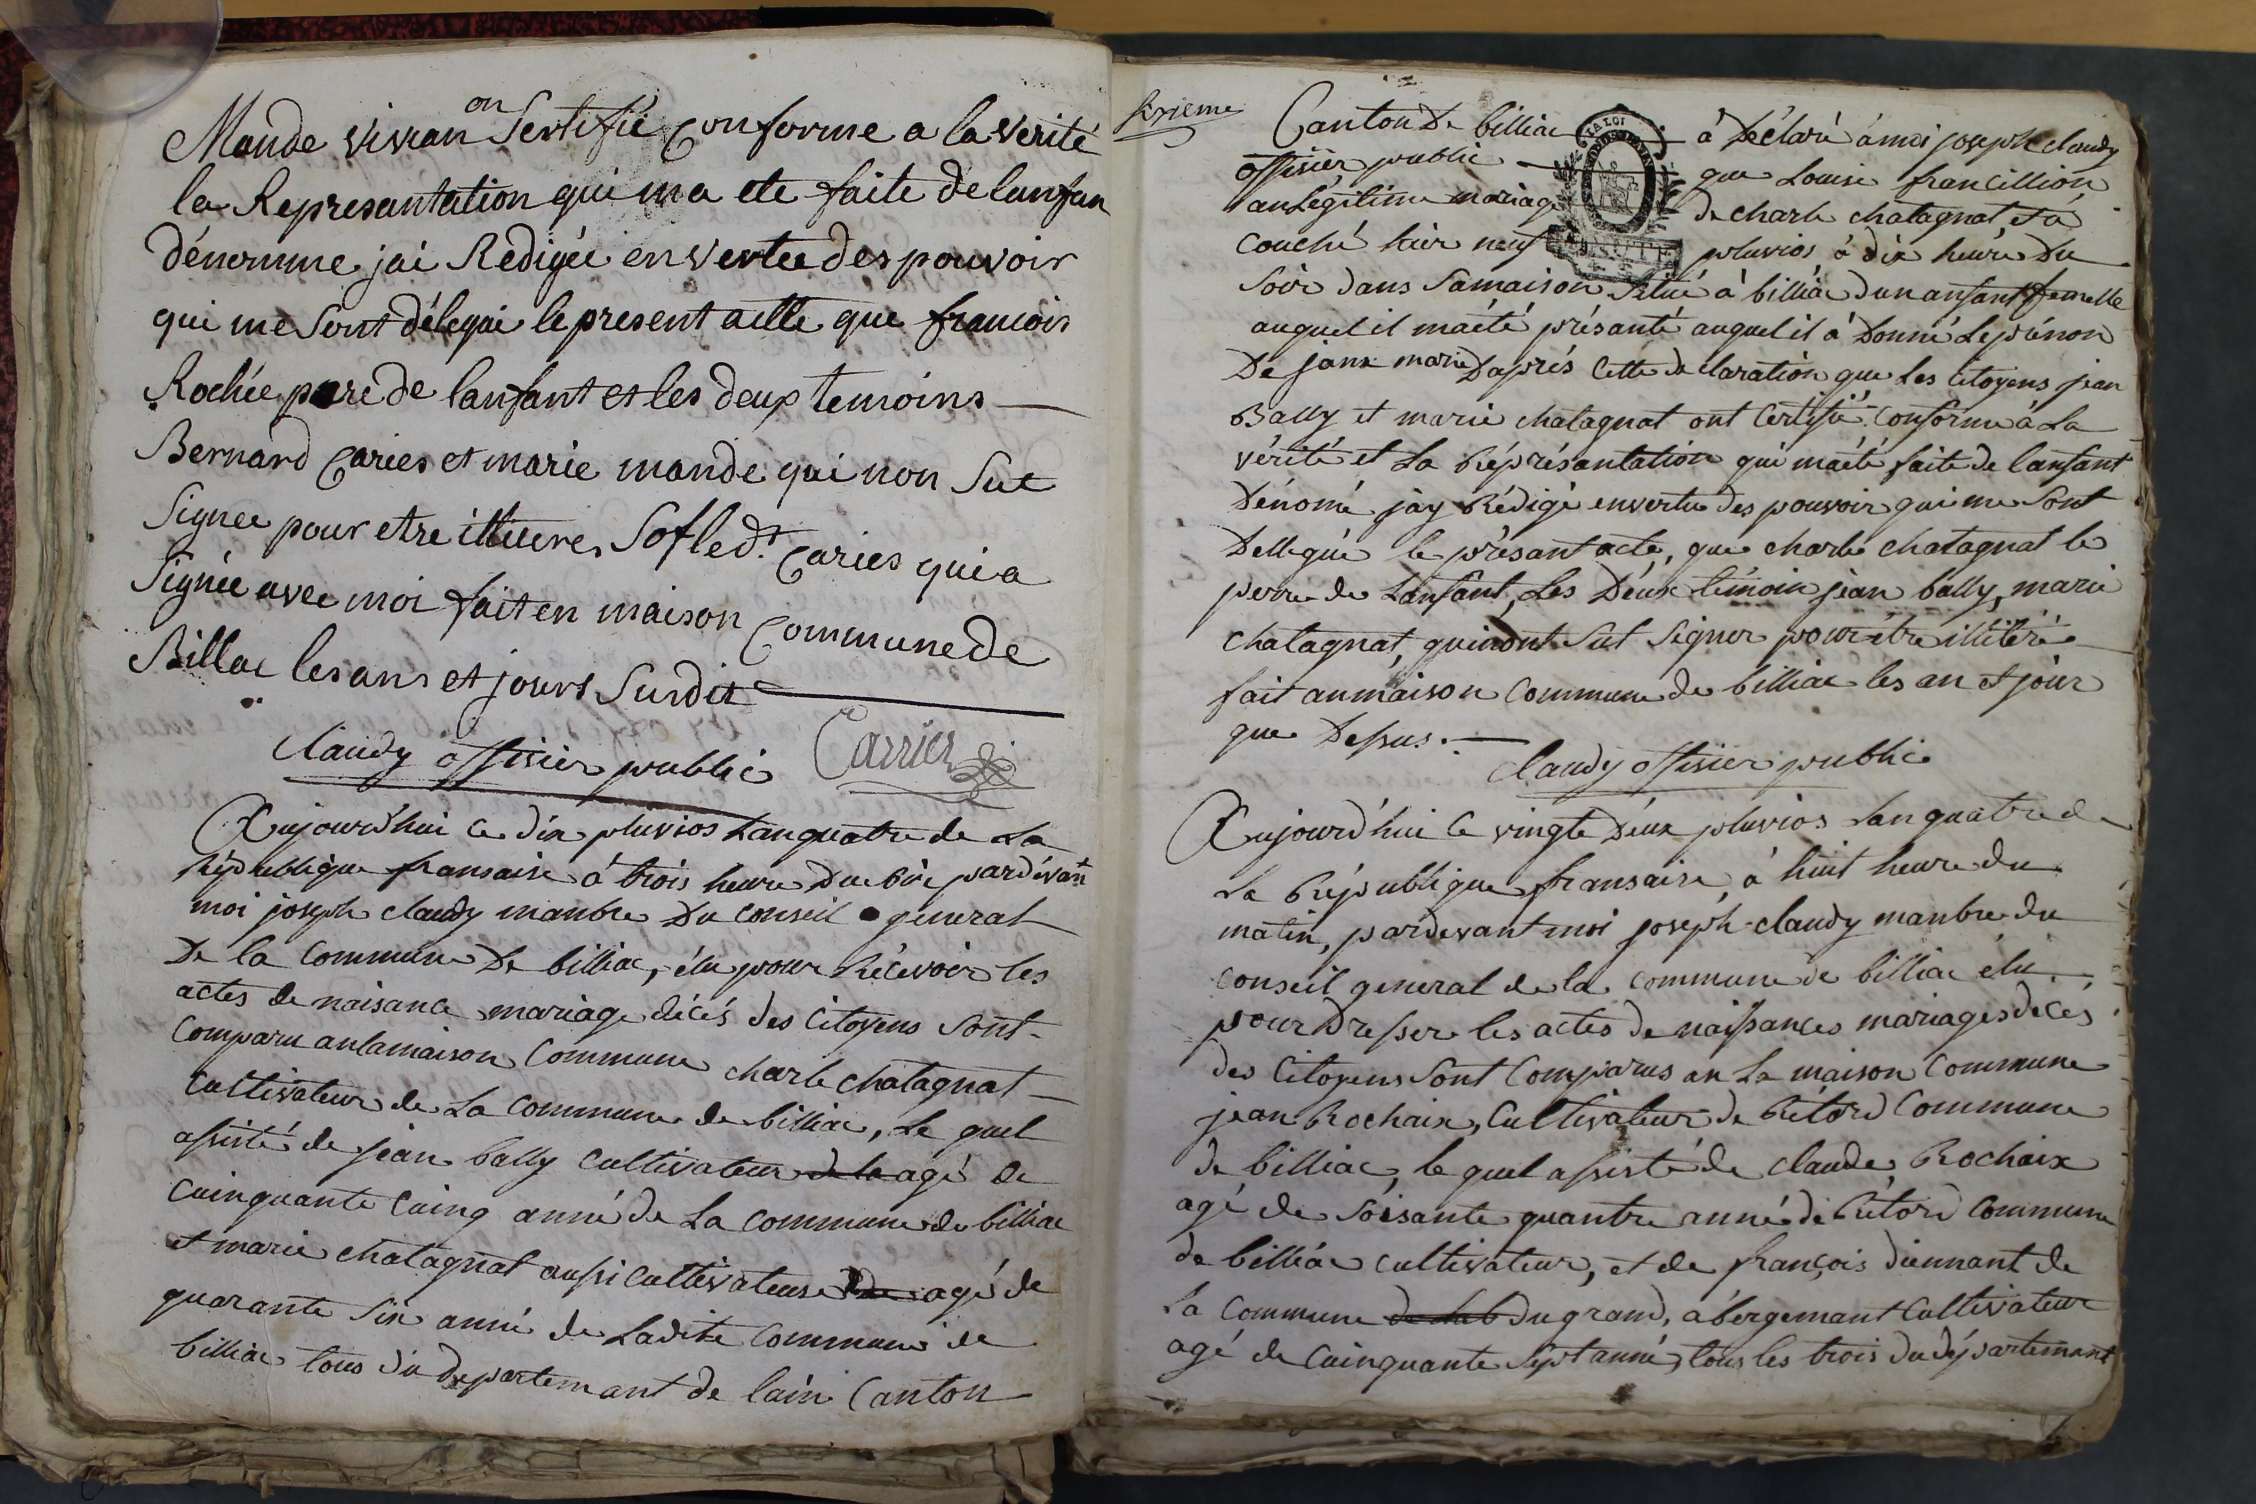 Mande vivian on Sertifié Conforme a la verité
la Represantation qui ma ete faite de lanfan
dénomme jai Redigée en vertee des pouvoir
qui me sont délegai le present aitte que francois
Rochée pere de lanfant et les deux temoins
Bernard Caries et marie mande qui non Sut
Signee pour etre illitere, Sofledt Caries qui a
Signée avec moi fait en maison Commune de
Billac les ans et jours Surdit
Claudy offisier public Carrier
Aujourdhui ce dix pluvios Lan quatre de La
République fransaise à trois heure Du soir pardevant
moi joseph claudy manbre Du conseil general
De la Commune De billiac, élu pour Récevoir les
actes de naisance mariage décés des Citoyens Sont
Comparu an lamaison Commune charle chatagnat
Cultivateur de La Commune de billiac, Le quel
assisté de jean bally Cultivateur de la agé de
Cuinquante Cuinq anné de La Commune de billiac
et marie chatagnat aussi Cultivateuse de agé de
quarante Six anné de Ladite Commune de
billiac tous du departemant de lain Canton
sixieme
Canton De billiac à Déclaré à moi joseph claudy
offisier public que Louise francillion
an Légitime mariage de charle chatagnat, et à
Couché hier neuf pluvios à dix heure Du
Soir dans Samaison Situé à billiac dun anfant femelle
auquel il maété présanté auquel il à Donné Le prénon
De jane marie Daprés Cette declaration que Les Citoyens jean
Bally et marie chatagnat ont Certifié Conforme à La
vérité et La Réprésantation qui maété faite de Lanfant
Dénomé jay Rédigé envertu des pouvoir qui me Sont
Dellegué le présant acte, que charle chatagnat le
perre de Lanfant, Les Deux témoin jean bally, marie
chatagnat, qui nont Sut Signer pour être illitéré
fait anmaison Commune de billiac les an et jour
que Dessus.
Claudy offisier public
Aujourd'hui Ce vingte Deux pluvios Lan quatre de
La République fransaise, à huit heure du
matin, pardevant moi joseph claudy manbre du
conseil general de la commune de billiac élu
pour Dresser les actes de naissances mariages décés
des Citoyens Sont Comparus an La maison Commune
jean Rochaix, Cultivateur de Rétord Commune
de billiac, le quel assisté de Claude Rochaix
agé de Soisante quantre anné de Rétord Commune
de billiac cultivateur, et de françois diennant de
La Commune du grand, abergemant Cultivateur
agé de Cuinquante Sept anné, tous les trois du département
LA LOI